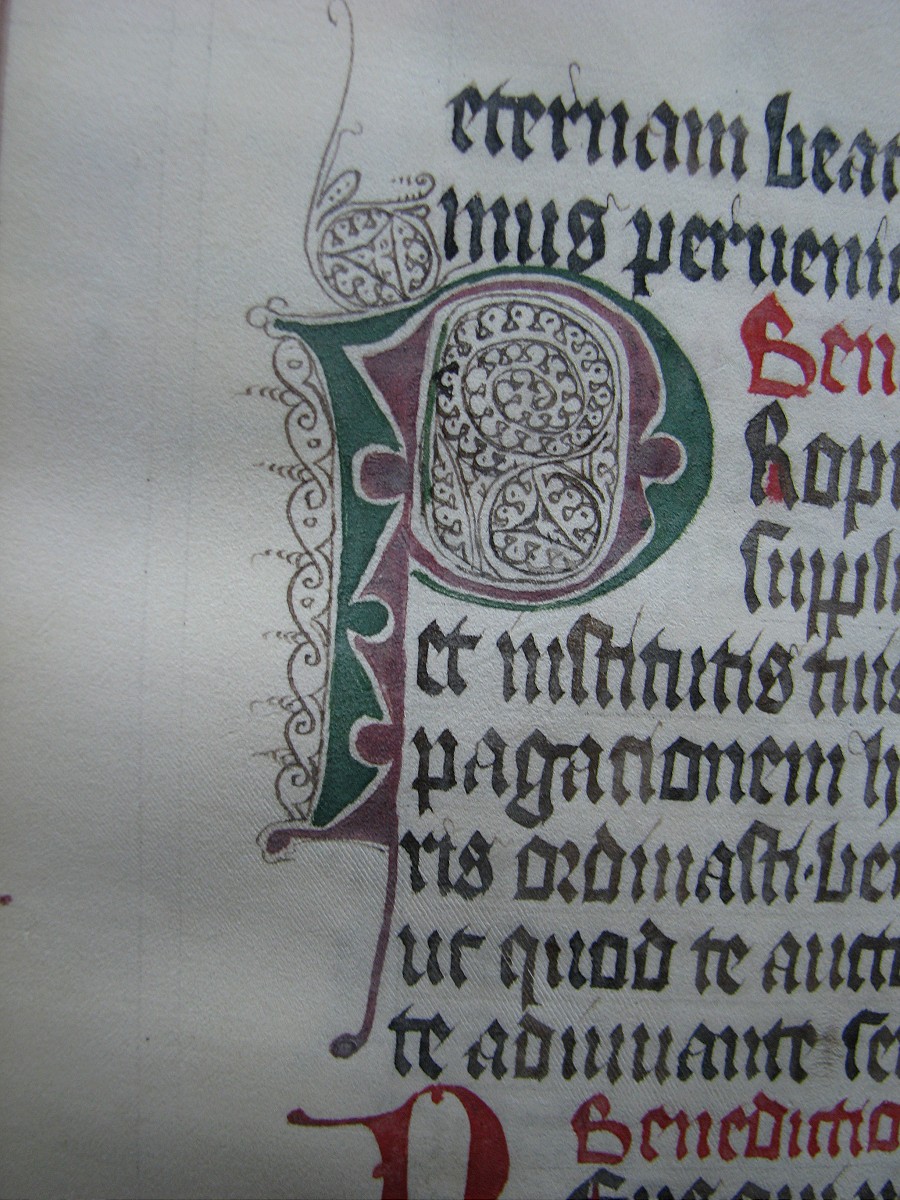 eternam beat
mus peruenir
Ben
PRopi
suppli
et institutis tuis
pagacionem h
ris ordinasti·ben
ut quod te aucto
te adiuuante ser
Benedictio
D